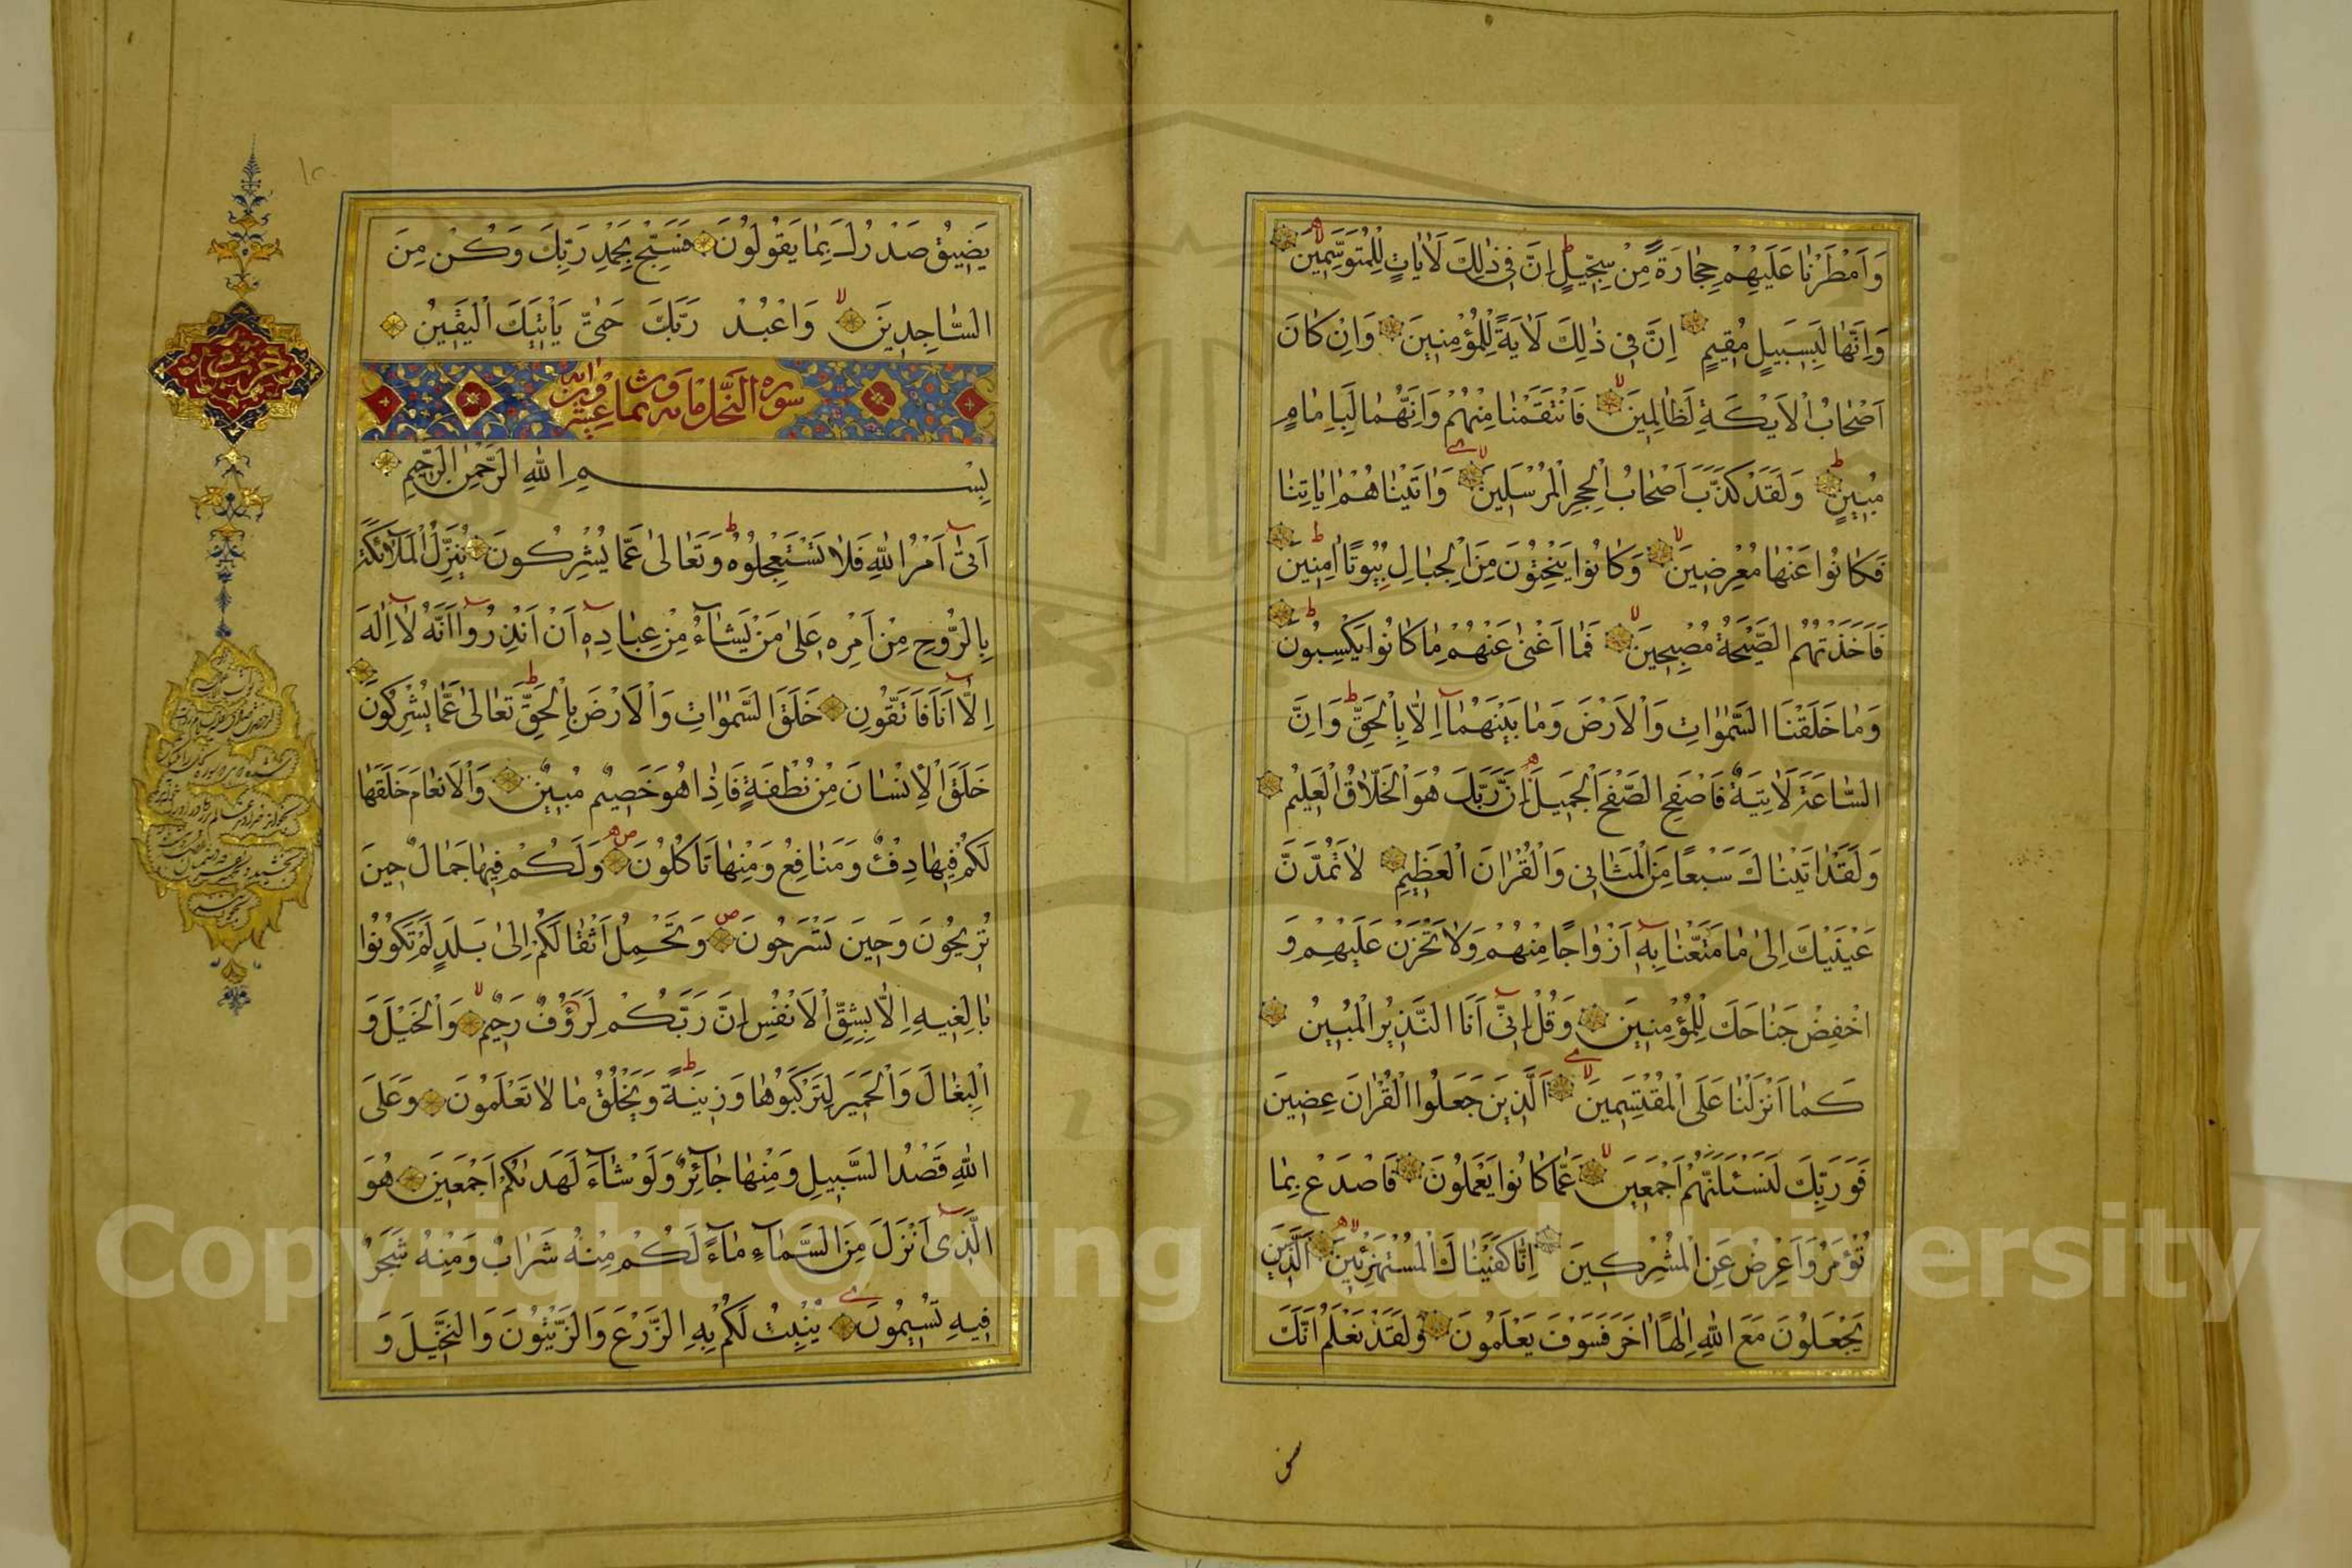 وَاَمْطَرْنٰا عَلَيْهِمْ حِجٰارَةً مِنْ سِجّٖيلٍ اِنَّ فٖي ذٰلِكَ لَاٰيٰاتٍ لِلْمُتَوَسِّمٖينَ
وَاِنَّهٰا لَبِسَبٖيلٍ مُقٖيمٍ اِنَّ فٖي ذٰلِكَ لَاٰيَةً لِلْمُؤْمِنٖينَ وَاِنْ كٰانَ
اَصْحٰابُ الْاَيْكَةِ لَظٰالِمٖينَ فَانْتَقَمْنٰا مِنْهُمْ وَاِنَّهُمٰا لَبِاِمٰامٍ
مُبٖينٍ وَلَقَدْ كَذَّبَ اَصْحٰابُ الْحِجْرِ الْمُرْسَلٖينَ وَاٰتَيْنٰاهُمْ اٰيٰاتِنٰا
فَكٰانُوا عَنْهٰا مُعْرِضٖينَ وَكٰانُوا يَنْحِتُونَ مِنَ الْجِبٰالِ بُيُوتًا اٰمِنٖينَ
فَاَخَذَتْهُمُ الصَّيْحَةُ مُصْبِحٖينَ فَمٰا اَغْنٰى عَنْهُمْ مٰا كٰانُوا يَكْسِبُونَ
وَمٰا خَلَقْنَا السَّمٰوٰاتِ وَالْاَرْضَ وَمٰا بَيْنَهُمٰا اِلّٰا بِالْحَقِّ وَاِنَّ
السّٰاعَةَ لَاٰتِيَةٌ فَاصْفَحِ الصَّفْحَ الْجَمٖيلَ اِنَّ رَبَّكَ هُوَ الْخَلّٰاقُ الْعَلٖيمُ
وَلَقَدْ اٰتَيْنٰاكَ سَبْعًا مِنَ الْمَثٰانٖي وَالْقُرْاٰنَ الْعَظٖيمَ لٰا تَمُدَّنَّ
عَيْنَيْكَ اِلٰى مٰا مَتَّعْنٰا بِهٖ اَزْوٰاجًا مِنْهُمْ وَلٰا تَحْزَنْ عَلَيْهِمْ وَ
اخْفِضْ جَنٰاحَكَ لِلْمُؤْمِنٖينَ وَقُلْ اِنّٖي اَنَا النَّذٖيرُ الْمُبٖينُ
كَمٰا اَنْزَلْنٰا عَلَى الْمُقْتَسِمٖينَ اَلَّذٖينَ جَعَلُوا الْقُرْاٰنَ عِضٖينَ
فَوَرَبِّكَ لَنَسْئَلَنَّهُمْ اَجْمَعٖينَ عَمّٰا كٰانُوا يَعْمَلُونَ فَاصْدَعْ بِمٰا
تُؤْمَرُ وَاَعْرِضْ عَنِ الْمُشْرِكٖينَ اِنّٰا كَفَيْنٰاكَ الْمُسْتَهْزِئٖينَ اَلَّذٖينَ
يَجْعَلُونَ مَعَ اللّٰهِ اِلٰهًا اٰخَرَ فَسَوْفَ يَعْلَمُونَ وَلَقَدْ نَعْلَمُ اَنَّكَ
يَضٖيقُ صَدْرُكَ بِمٰا يَقُولُونَ فَسَبِّحْ بِحَمْدِ رَبِّكَ وَكُنْ مِنَ
السّٰاجِدٖينَ وَاعْبُدْ رَبَّكَ حَتّٰى يَاْتِيَكَ الْيَقٖينُ
سورة النحل مائة وثمان وعشرون اية
بِسْمِ اللّٰهِ الرَّحْمٰنِ الرَّحٖيمِ
اَتٰى اَمْرُ اللّٰهِ فَلٰا تَسْتَعْجِلُوهُ وَتَعٰالٰى عَمّٰا يُشْرِكُونَ يُنَزِّلُ الْمَلٰٓائِكَةَ
بِالرُّوحِ مِنْ اَمْرِهٖ عَلٰى مَنْ يَشٰٓاءُ مِنْ عِبٰادِهٖ اَنْ اَنْذِرُوا اَنَّهُ لٰا اِلٰهَ
اِلّٰا اَنَا فَاتَّقُونِ خَلَقَ السَّمٰوٰاتِ وَالْاَرْضَ بِالْحَقِّ تَعٰالٰى عَمّٰا يُشْرِكُونَ
خَلَقَ الْاِنْسٰانَ مِنْ نُطْفَةٍ فَاِذٰا هُوَ خَصٖيمٌ مُبٖينٌ وَالْاَنْعٰامَ خَلَقَهٰا
لَكُمْ فٖيهٰا دِفْءٌ وَمَنٰافِعُ وَمِنْهٰا تَاْكُلُونَ وَلَكُمْ فٖيهٰا جَمٰالٌ حٖينَ
تُرٖيحُونَ وَحٖينَ تَسْرَحُونَ وَتَحْمِلُ اَثْقٰالَكُمْ اِلٰى بَلَدٍ لَمْ تَكُونُوا
بٰالِغٖيهِ اِلّٰا بِشِقِّ الْاَنْفُسِ اِنَّ رَبَّكُمْ لَرَؤُفٌ رَحٖيمٌ وَالْخَيْلَ وَ
الْبِغٰالَ وَالْحَمٖيرَ لِتَرْكَبُوهٰا وَزٖينَةً وَيَخْلُقُ مٰا لٰا تَعْلَمُونَ وَعَلَى
اللّٰهِ قَصْدُ السَّبٖيلِ وَمِنْهٰا جٰٓائِرٌ وَلَوْ شٰٓاءَ لَهَدٰيكُمْ اَجْمَعٖينَ هُوَ
الَّذٖي اَنْزَلَ مِنَ السَّمٰٓاءِ مٰٓاءً لَكُمْ مِنْهُ شَرٰابٌ وَمِنْهُ شَجَرٌ
فٖيهِ تُسٖيمُونَ يُنْبِتُ لَكُمْ بِهِ الزَّرْعَ وَالزَّيْتُونَ وَالنَّخٖيلَ وَ
Copyright © King Saud University
1957